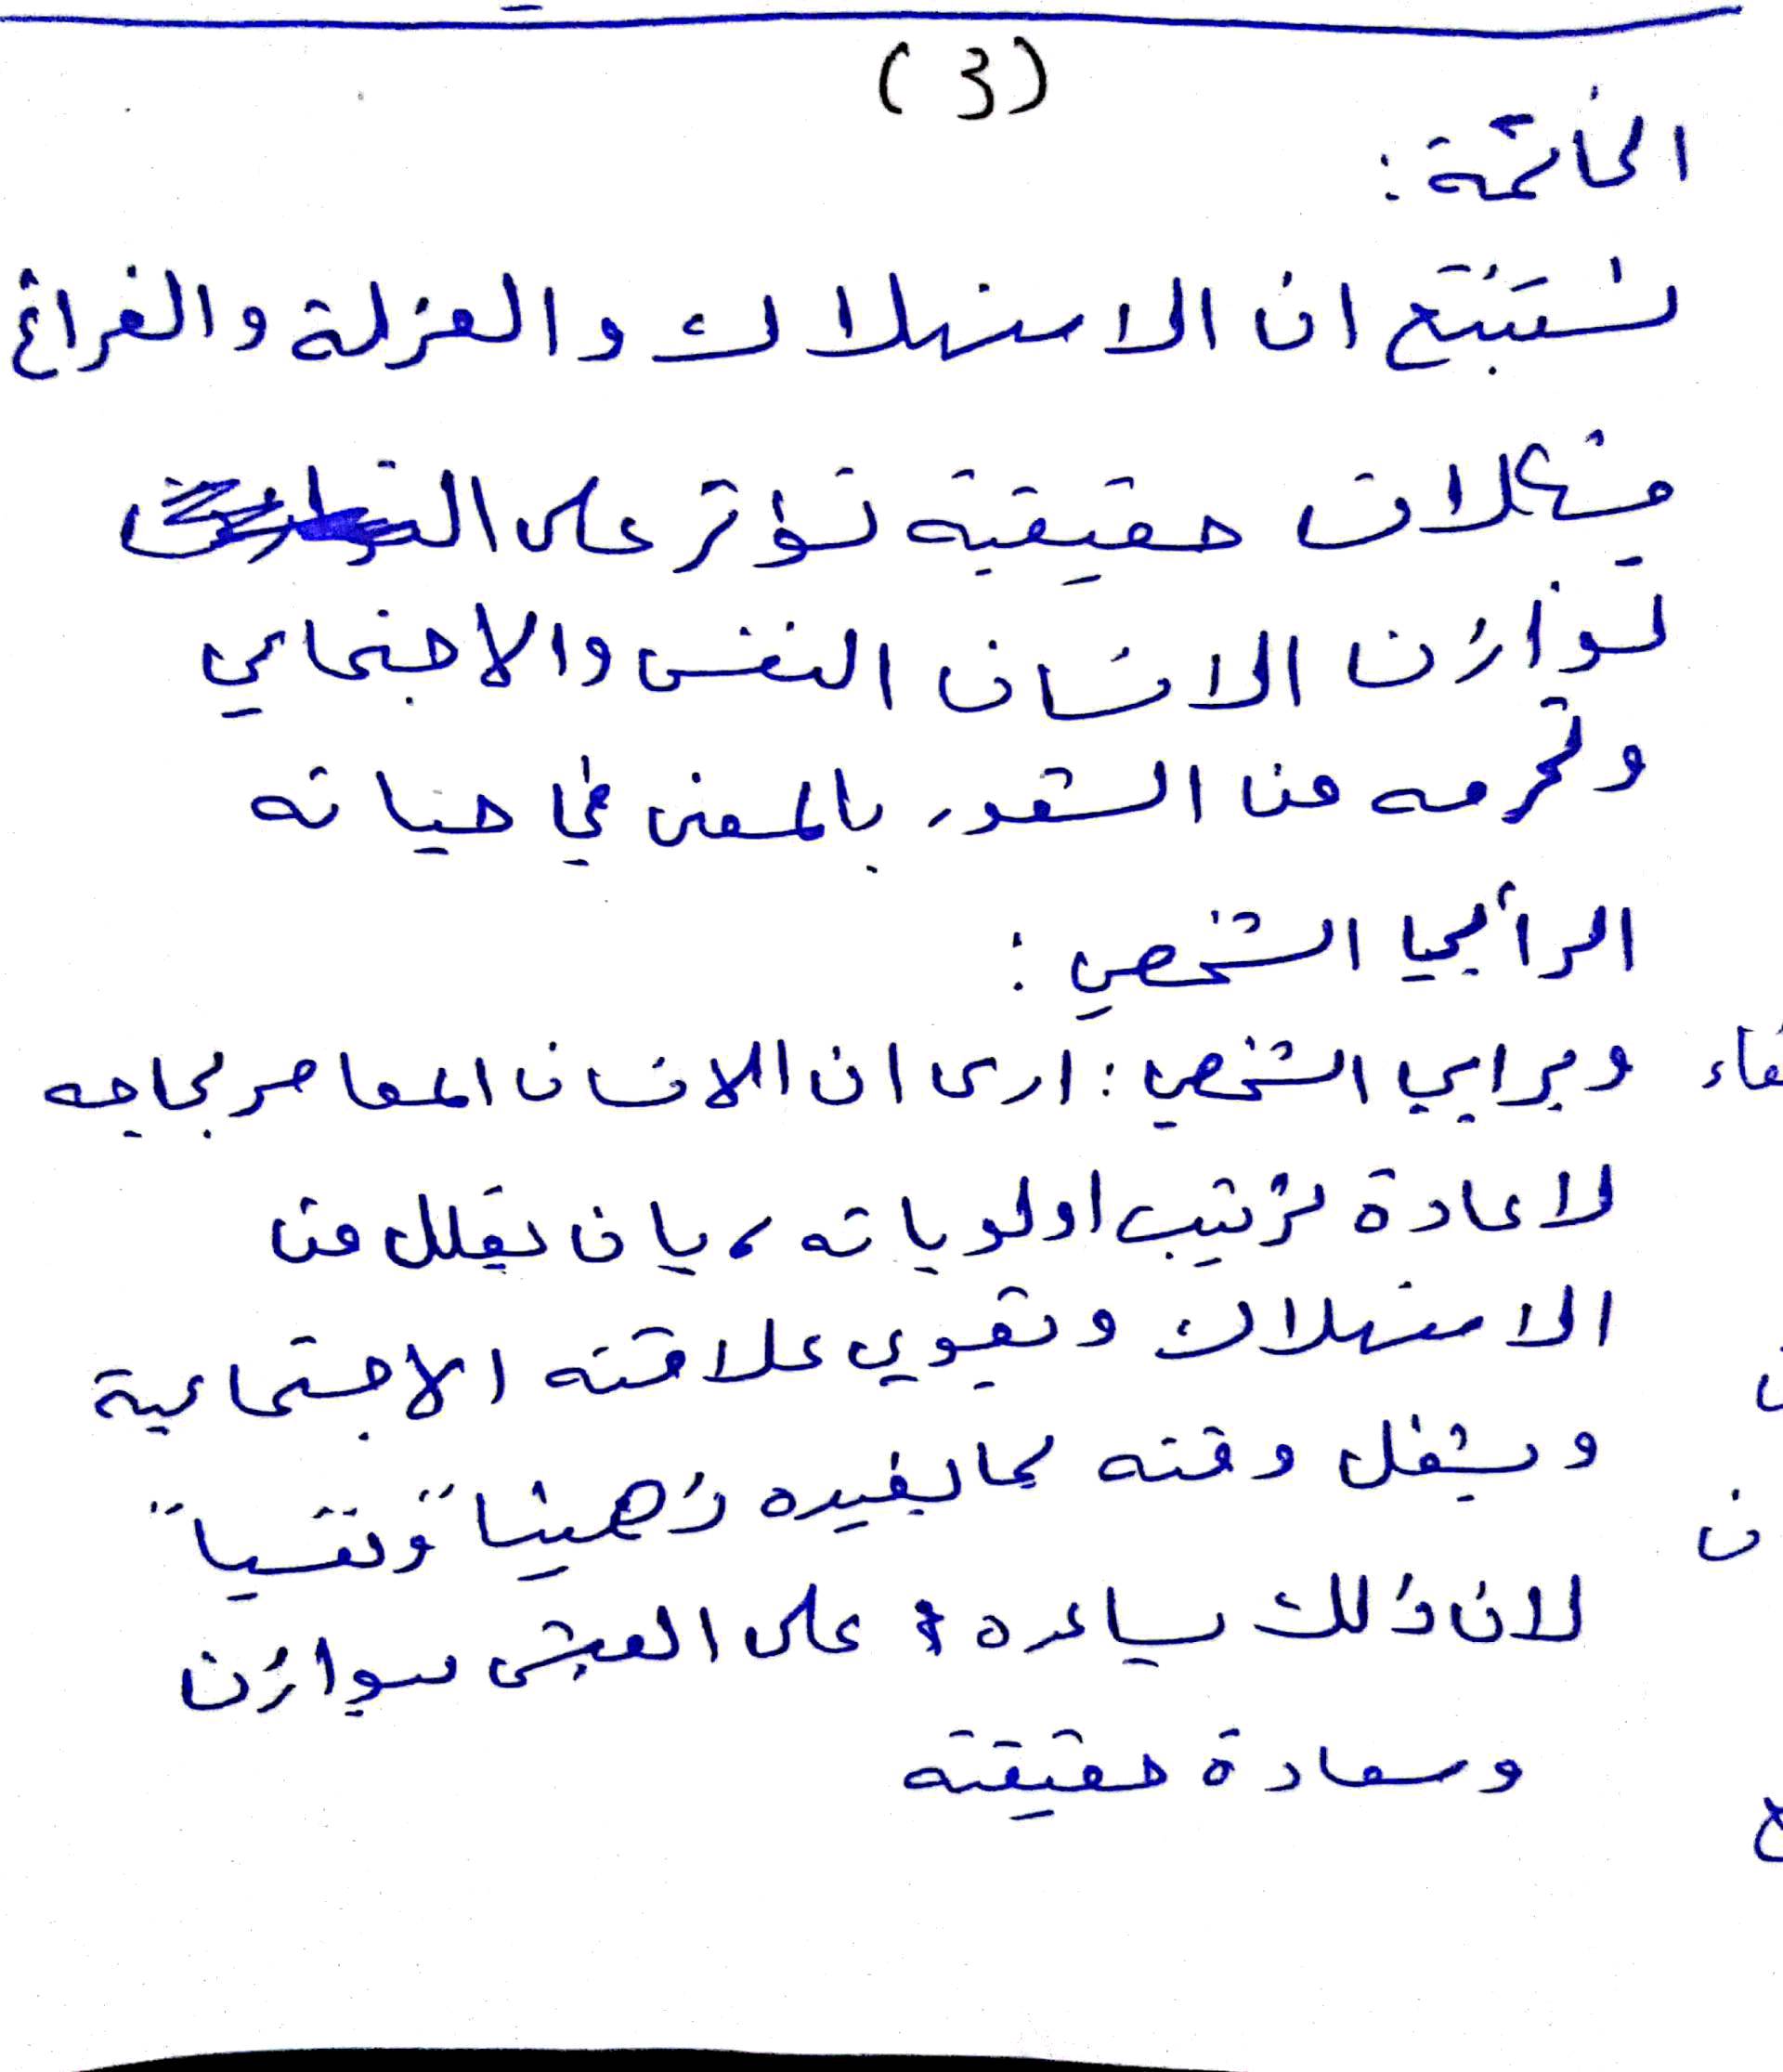 (3)
الخاتمة :
نستنتج ان الاستهلاك والعزلة والفراغ
مشكلات حقيقية تؤثر على
توازن الانسان النفس والاجتماعي
وتحرمه من الشعور بالمعنى في حياته
الرأي الشخصي :
وبرايي الشخصي : ارى ان الانسان المعاصر بحاجه
لاعادة ترتيب اولوياته ، بان يقلل من
الاستهلاك ويقوي علاقته الاجتماعية
ويشغل وقته بما يفيده ذهنياً ونفسياً
لان ذلك يساعده على العيش بتوازن
وسعادة حقيقته